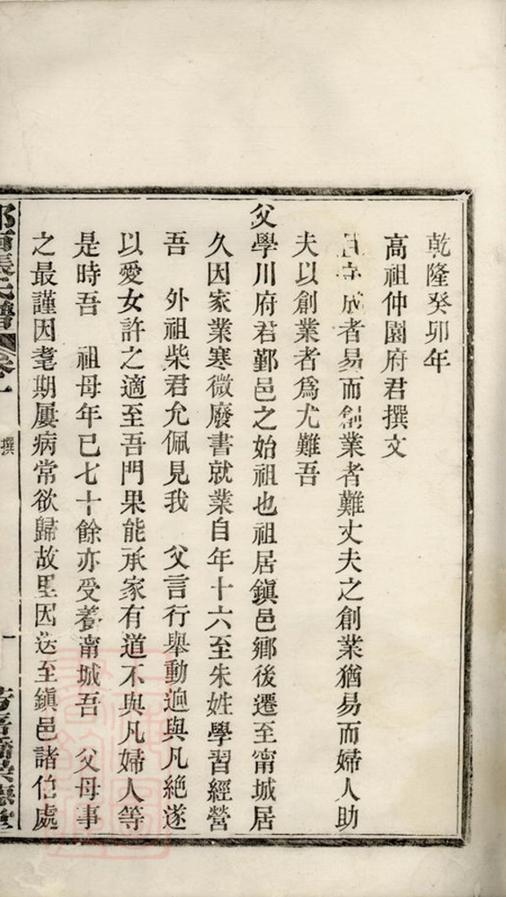 乾隆癸卯年
高祖仲園府君撰文
守成者易而創業者難丈夫之創業猶易而婦人助
夫以創業者爲尤難吾
父學川府君鄞邑之始祖也祖居鎭邑鄉後遷至甯城居
久因家業寒微廢書就業自年十六至朱姓學習經營
吾　外祖柴君允佩見我　父言行舉動逈與凡絶遂
以愛女許之適至吾門果能承家有道不與凡婦人等
是時吾　祖母年已七十餘亦受養甯城吾　父母事
之最謹因耄期屢病常欲歸故里因送至鎭邑諸伯處
張氏譜 卷一
撰
一